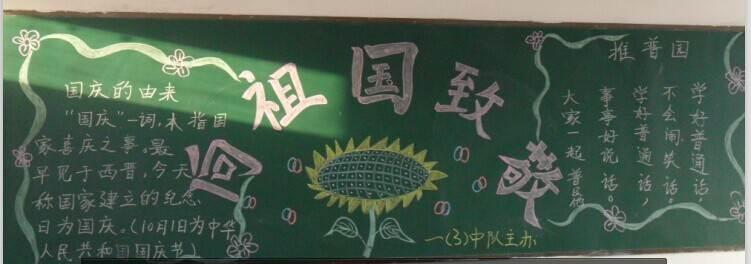 国庆的由来
"国庆"一词，本指国
家喜庆之事，最
早见于西晋，今天
称国家建立的纪念
日为国庆。(10月1日为中华
人民共和国国庆节)
向祖国致敬
推普园
学好普通话，
不会闹笑话。
学好普通话，
事事好说话。
大家一起普及他
一(3)中队主办